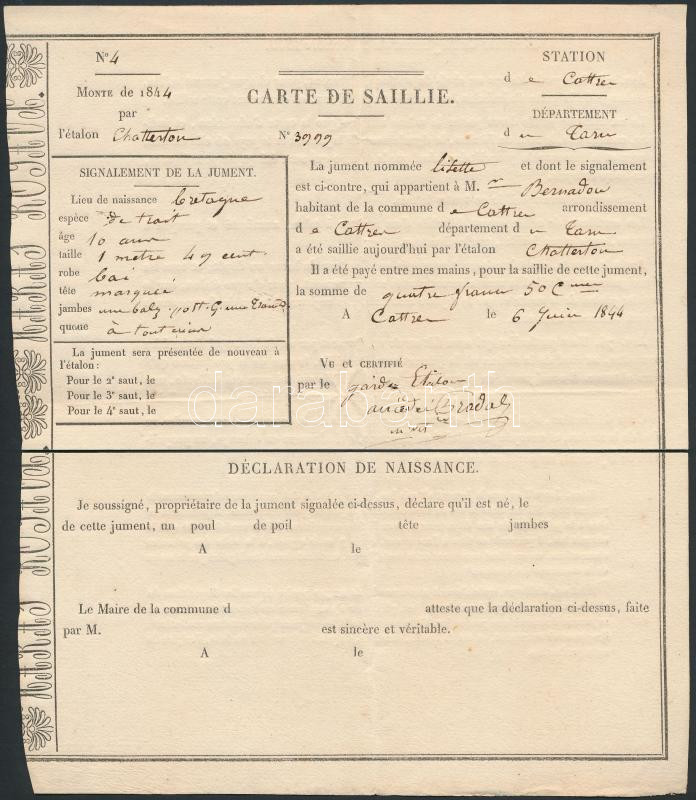 N.º 4
MONTE DE 1844
par
l'étalon Chatterton
CARTE DE SAILLIE.
N.º 3999
STATION
d e Castres
DÉPARTEMENT
d u Tarn
SIGNALEMENT DE LA JUMENT.
Lieu de naissance bretagne
espèce de trait
âge 10 ans
taille 1 metre 49 cent.
robe bai
tête marquée
jambes une balz. post. G. une
queue à tout crin
La jument sera présentée de nouveau à
l'étalon:
Pour le 2e saut, le
Pour le 3e saut, le
Pour le 4e saut, le
La jument nommée lisette et dont le signalement
est ci-contre, qui appartient à M. Bernadou
habitant de la commune d e Castres arrondissement
d e Castres département d u Tarn
a été saillie aujourd'hui par l'étalon Chatterton
Il a été payé entre mes mains, pour la saillie de cette jument,
la somme de quatre francs 50 Cmes
A Castres le 6 Juin 1844
VU ET CERTIFIÉ
par le garde Etalon
darabanth
DÉCLARATION DE NAISSANCE.
Je soussigné, propriétaire de la jument signalée ci-dessus, déclare qu'il est né, le
de cette jument, un poul de poil tête jambes
A le
Le Maire de la commune d atteste que la déclaration ci-dessus, faite
par M. est sincère et véritable.
A le